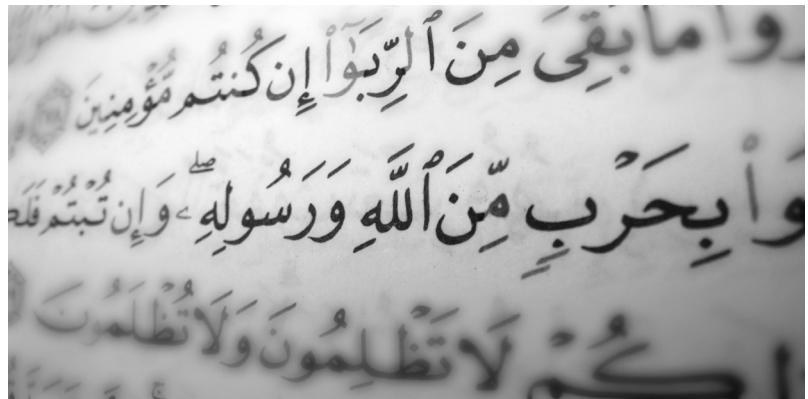 مَا بَقِىَ مِنَ ٱلرِّبَوٰٓا۟ إِن كُنتُم مُّؤْمِنِينَ
بِحَرْبٍ مِّنَ ٱللَّهِ وَرَسُولِهِۦ ۖ وَإِن تُبْتُمْ
لَا تَظْلِمُونَ وَلَا تُظْلَمُونَ